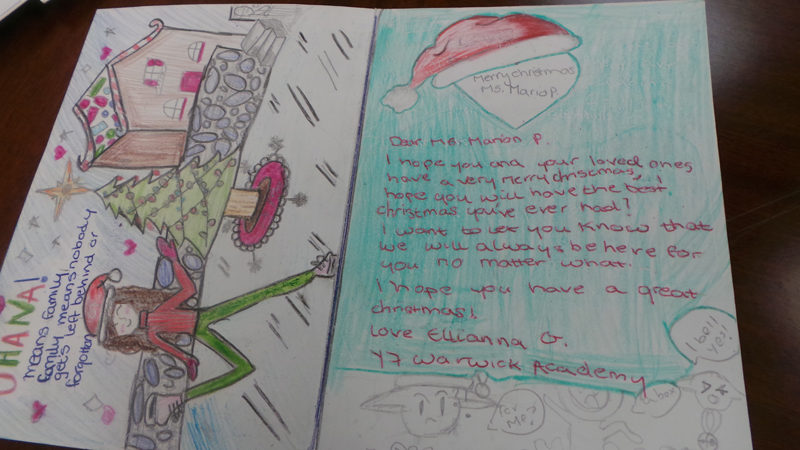 OHANA!
means family,
family means nobody
gets left behind or
forgotten
Merry christmas
Ms. Marion P.
Dear Ms. Marion P.
I hope you and your loved ones
have a very merry christmas, I
hope you will have the best
christmas you've ever had!
I want to let you know that
we will always be here for
you no matter what.
I hope you have a great
christmas!
Love Ellianna G.
Y7 Warwick Academy
I bell
yes!
for
Me?
a box